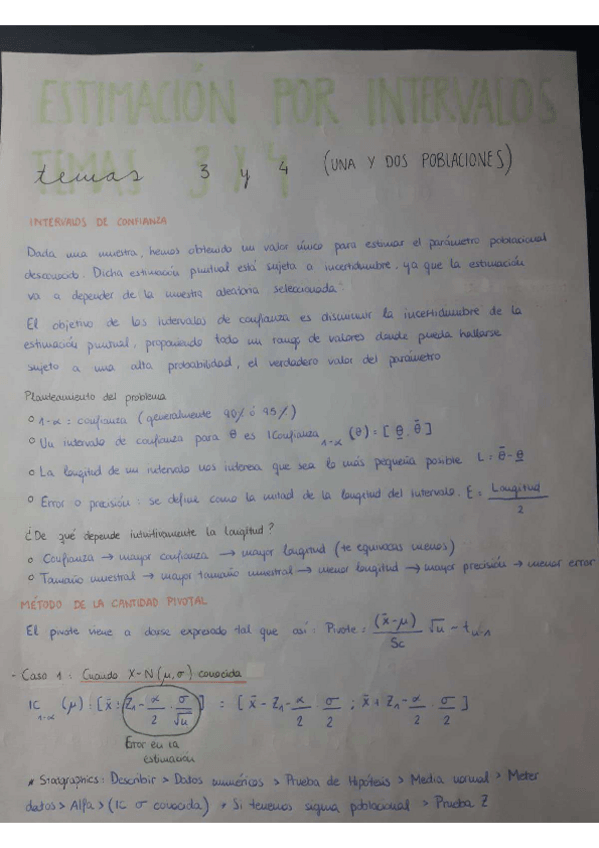 ESTIMACIÓN POR INTERVALOS
TEMAS 3 Y 4
temas 3 y 4 (UNA Y DOS POBLACIONES)
INTERVALOS DE CONFIANZA
Dada una muestra, hemos obtenido un valor único para estimar el parámetro poblacional
desconocido. Dicha estimación puntual está sujeta a incertidumbre, ya que la estimación
va a depender de la muestra aleatoria seleccionada.
El objetivo de los intervalos de confianza es disminuir la incertidumbre de la
estimación puntual, proponiendo todo un rango de valores donde pueda hallarse
sujeto a una alta probabilidad, el verdadero valor del parámetro
Planteamiento del problema
o 1-α : confianza (generalmente 90% ó 95%)
o Un intervalo de confianza para θ es IConfianza 1-α (θ) = [θ̲, θ̄]
o La longitud de un intervalo nos interesa que sea lo más pequeña posible L = θ̄-θ̲
o Error o precisión : se define como la mitad de la longitud del intervalo. E = Longitud / 2
¿De qué depende intuitivamente la longitud?
o Confianza → mayor confianza → mayor longitud (te equivocas menos)
o Tamaño muestral → mayor tamaño muestral → menor longitud → mayor precisión → menor error
MÉTODO DE LA CANTIDAD PIVOTAL
El pivote viene a darse expresado tal que así : Pivote : (x̄-μ) / Sc √n ~ t n-1
- Caso 1 : Cuando X~N(μ,σ) conocida
IC 1-α (μ) : [x̄ ± Z1-α/2 · σ/√n] = [x̄ - Z1-α/2 · σ/2 ; x̄ + Z1-α/2 · σ/2]
Error en la
estimación
* Statgraphics : Describir > Datos numéricos > Prueba de Hipótesis > Media normal > Meter
datos > Alfa > (IC σ conocida) * Si tenemos sigma poblacional > Prueba Z